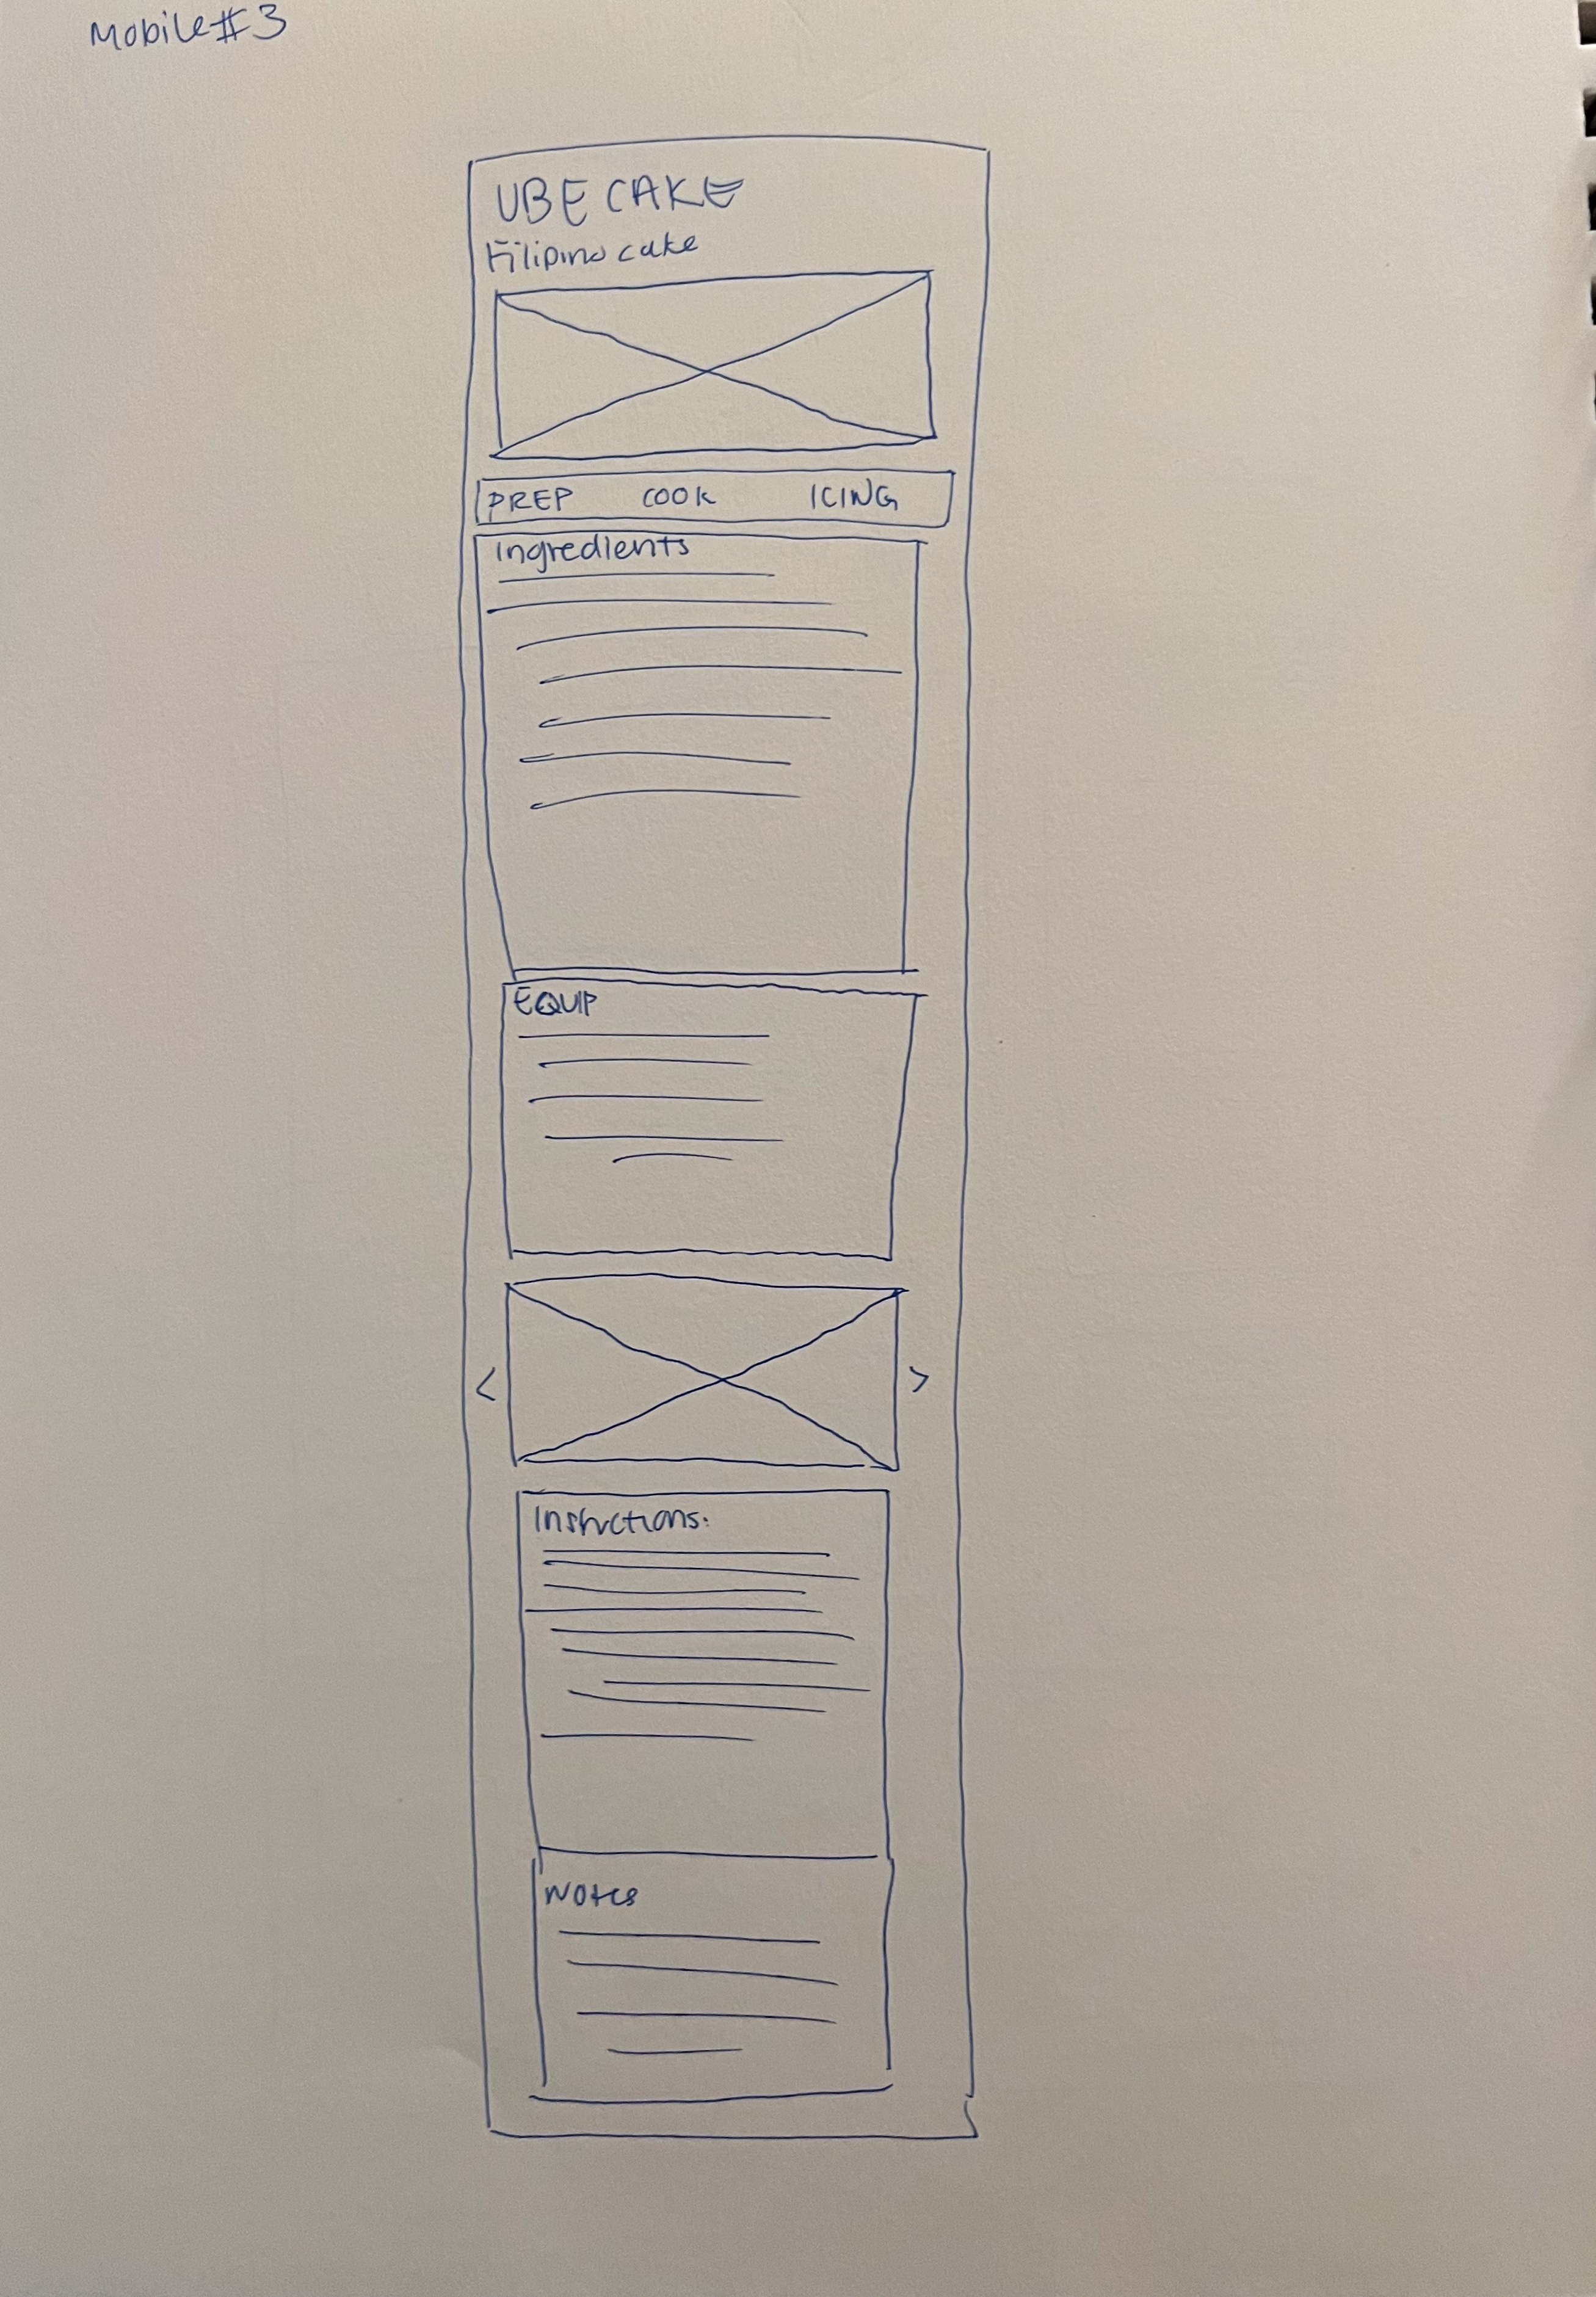 Mobile #3
UBE CAKE
Filipino cake
PREP COOK ICING
Ingredients
EQUIP
< >
Instructions:
Notes